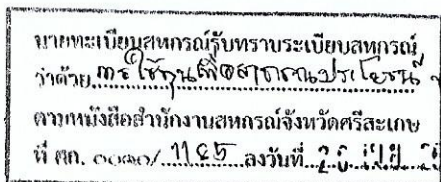 นายทะเบียนสหกรณ์รับทราบระเบียบสหกรณ์
ว่าด้วย การใช้ทุนเพื่อสาธารณประโยชน์
ตามหนังสือสำนักงานสหกรณ์จังหวัดศรีสะเกษ
ที่ ศก. ๐๐๑๐/ 1185 ลงวันที่ 26